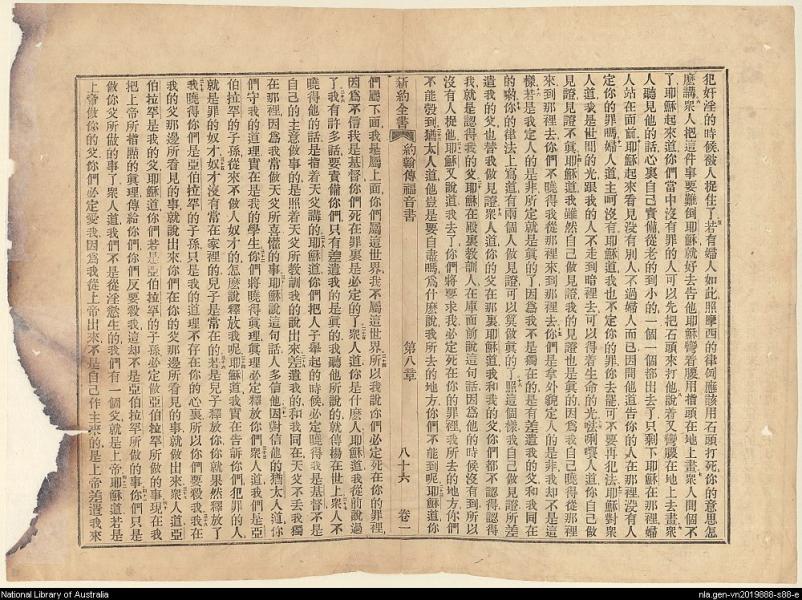 犯奸淫的時候被人捉住了若有婦人如此照摩西的律例應該用石頭打死你的意思怎
麼講衆人把這件事要難倒耶穌就好去告他耶穌彎着腰用指頭在地上畫衆人問個不
了耶穌起來道你們當中沒有罪的人可以先把石頭來打他說着又彎腰在地上去畫衆
人聽見他的話心裏自己責備從老的到小的一個一個都出去了只剩下耶穌在那裡婦
人站在面前耶穌起來看見沒有別人不過婦人而已因問他道告你的人在那裡沒有人
定你的罪嗎婦人道主呵沒有耶穌道我也不定你的罪你去罷可不要再犯法耶穌對衆
人道我是世間的光跟我的人不走到暗裡去可以得着生命的光𠵽唎㘔人道你自己做
見證見證不眞耶穌道我雖然自己做見證我的見證也是眞的因爲我自己曉得從那裡
來到那裡去你們不曉得我從那裡來到那裡去你們是拿外貌定人的是非我却不是這
樣若是我定人的是非所定就是眞的了因爲我不是獨在的是有差遣我的父和我同在
的喲你的律法上寫道有兩個人做見證可以算做眞的了照這個樣我自己做見證所差
遣我的父也替我做見證衆人道你的父在那裏耶穌道我和我的父你們都不認得認得
我就是認得我的父耶穌在殿裏教訓人在庫面前說這句話因爲他的時候沒有到所以
沒有人捉他耶穌又說道我去了你們將要求我必定死在你的罪裡我所去的地方你們
不能到猶太人道他豈是要自盡嗎爲什麼說我所去的地方你們不能到呢耶穌道你
新約全書 約翰傳福音書 第八章 八十六 卷一
們屬下面我是屬上面你們屬這世界我不屬這世界所以我說你們必定死在你的罪裡
因爲不信我是基督你們死在罪裏是必定的了衆人道你是什麼人耶穌道我從前說過
了我有許多話要責備你們只有差遣我的是眞的我聽他所說的就傳揚在世上衆人不
曉得他的話是指着天父講的耶穌道你們把人子舉起的時候必定曉得我是基督不是
自己的主意做事的是照着天父所教訓我的說出來差遣我的和我同在天父不丢我獨
在那裡因爲我常做天父所喜懽的事耶穌說這句話人多信他因對信他的猶太人道你
們守我的道理實在是我的學生你們將曉得眞理眞理必定釋放你們衆人道我們是亞
伯拉罕的子孫從來不做人奴才的怎麼說釋放我呢耶穌道我實在告訴你們犯罪的人
就是罪的奴才奴才沒有常在家裡的兒子是常在的若是兒子釋放你你就果然釋放了
我曉得你們是亞伯拉罕的子孫只是我的道理不存在你的心裏所以你們要殺我我在
我的父那邊所看見的事就說出來你們在你的父那邊所看見的事就做出來衆人道亞
伯拉罕是我的父耶穌道你們若是亞伯拉罕的子孫必定做亞伯拉罕所做的事現在我
把上帝所指點的眞理傳給你們你們反要殺我這却不是亞伯拉罕所做的事你們只是
做你父所做的事了衆人道我們不是從淫慾生的我們有一個父就是上帝耶穌道若是
上帝做你的父你們必定愛我因爲我從上帝出來不是自己作主來的是上帝差遣我來
National Library of Australia
nla.gen-vn2019888-s88-e